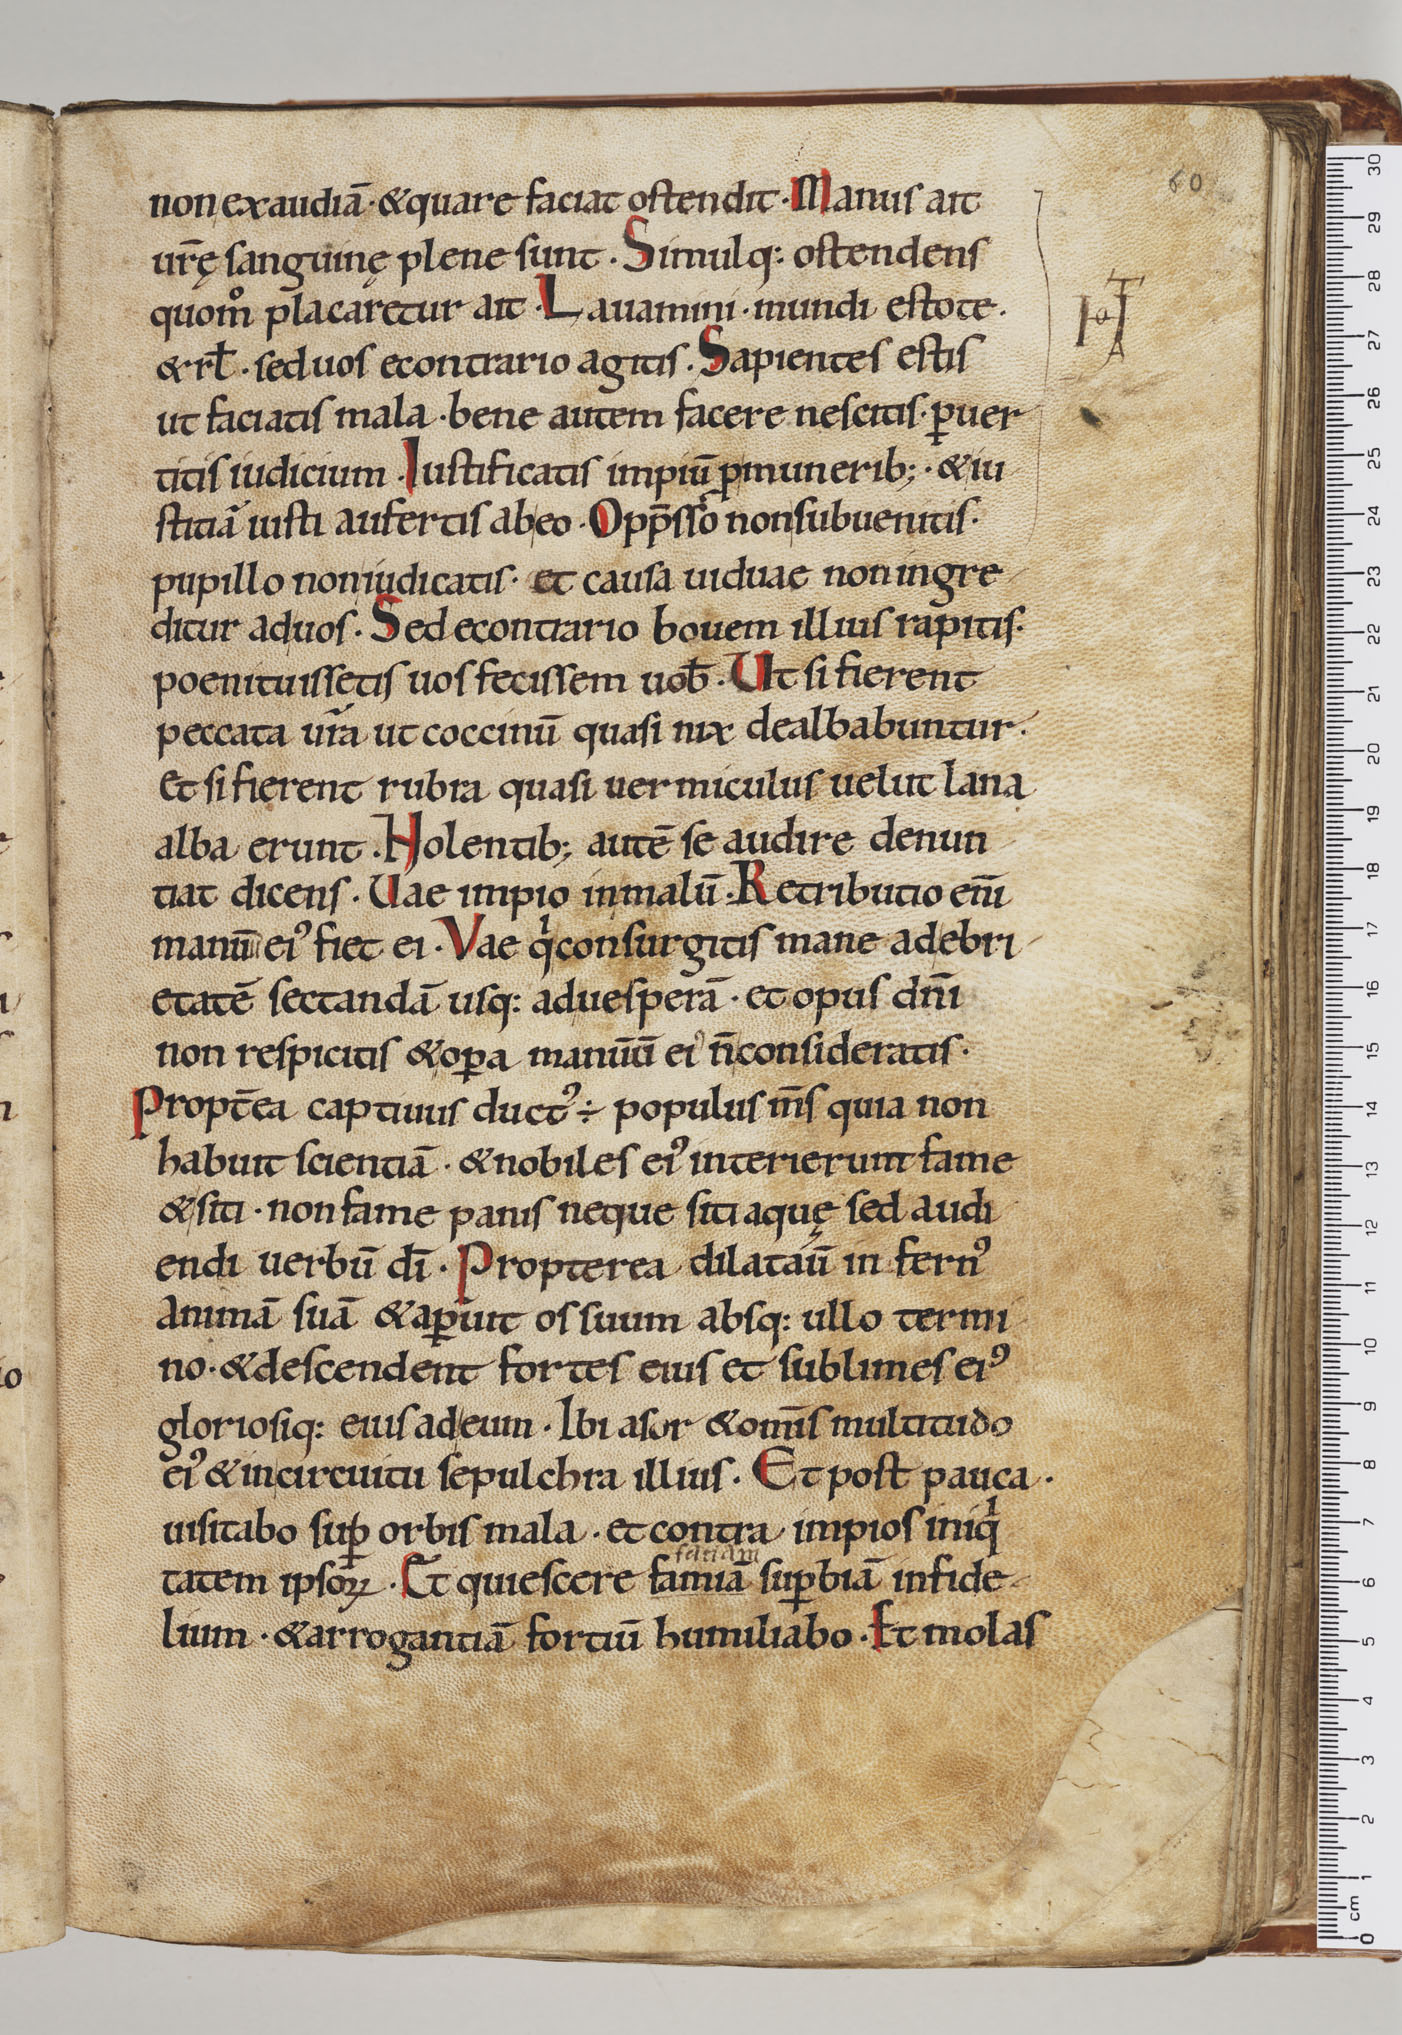 60
non exaudiā · & quare faciat ostendit · Manus ait
ur̄ę sanguinę plene sunt · Simulq: ostendens
quom̊ placaretur ait · Lauamini · mundi estote ·
& rł · sed uos econtrario agitis · Sapientes estis
ut faciatis mala · bene autem facere nescitis · ꝑuer
titis iudicium · Iustificatis impiū p muneribꝫ · & iu
stitiā iusti aufertis ab eo · Opp̄sso non subuenitis ·
pupillo non iudicatis · et causa uiduae non ingre
ditur ad uos · Sed econtrario bouem illius rapitis ·
poenituissetis uos fecissem uob̄ · Ut si fierent
peccata ur̄a ut coccinū quasi nix dealbabuntur ·
Et si fierent rubra quasi uermiculus uelut lana
alba erunt · Nolentibꝫ autē se audire denun
tiat dicens · Uae impio in malū · Retributio eni̅
manū eiꝰ fiet ei · Vae qͥ consurgitis mane ad ebri
etatē sectandā usq: ad uesperā · et opus dn̄i
non respicitis & oꝑa manuū eiꝰ n̄ consideratis ·
Propt̄ea captiuus ductꝰ ÷ populus m̄s quia non
habuit scientiā · & nobiles eiꝰ interierunt fame
& siti · non fame panis neque siti aquę sed audi
endi uerbū dī · Propterea dilatauı̄ infernꝰ
animā suā & aꝑuit os suum absq: ullo termi
no · & descendent fortes eius et sublimes eiꝰ
gloriosiq: eius ad eum · Ibi asor & om̄s multitudo
eiꝰ & in circuitu sepulchra illius · Et post pauca ·
uisitabo suꝑ orbis mala · et contra impios iniqͥ
tatem ipsoꝝ · Et quiescere famiā suꝑbiā infide
lium · & arrogantiā fortiū humiliabo · Et molas